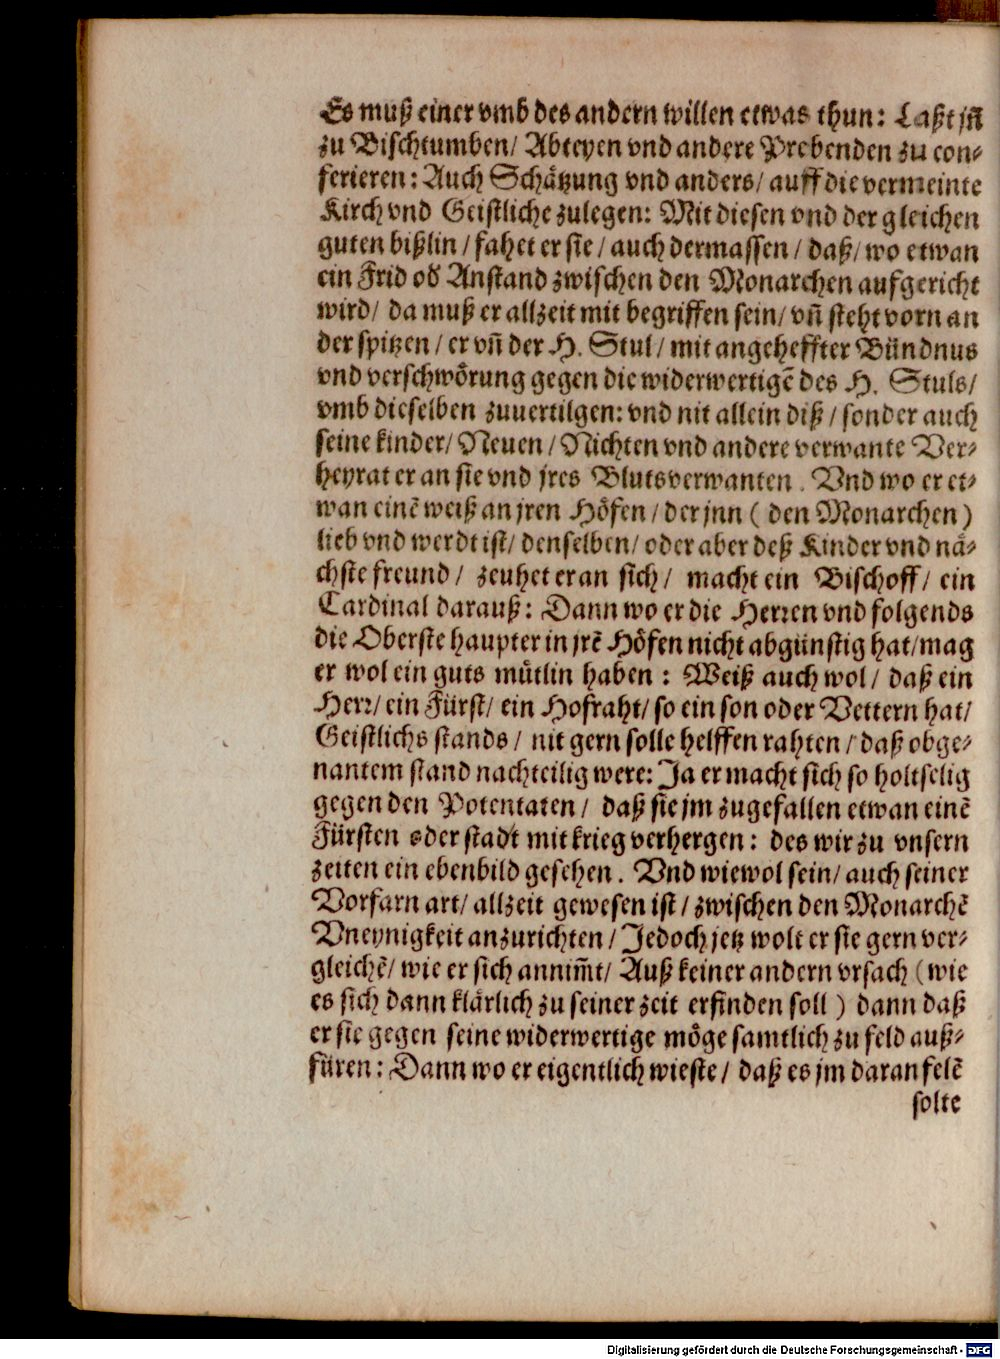 Es muß einer vmb des andern willen etwas thun: Laßt jñ
zu Bischtumben/ Abteyen vnd andere Prebenden zu con⸗
ferieren: Auch Schätzung vnd anders/ auff die vermeinte
Kirch vnd Geistliche zulegen: Mit diesen vnd der gleichen
guten bißlin/ fahet er sie/ auch dermassen/ daß/ wo etwan
ein Frid od̛ Anstand zwischen den Monarchen aufgericht
wird/ da muß er allzeit mit begriffen sein/ vñ steht vorn an
der spitzen/ er vñ der H. Stul/ mit angeheffter Bündnus
vnd verschwörung gegen die widerwertigẽ des H. Stuls/
vmb dieselben zuuertilgen: vnd nit allein diß/ sonder auch
seine kinder/ Neuen/ Nichten vnd andere verwante Ver⸗
heyrat er an sie vnd jres Blutsverwanten. Vnd wo er et⸗
wan einẽ weiß an jren Höfen/ der jnn (den Monarchen)
lieb vnd werdt ist/ denselben/ oder aber deß Kinder vnd nä⸗
chste freund/ zeuhet er an sich/ macht ein Bischoff/ ein
Cardinal darauß: Dann wo er die Herren vnd folgends
die Oberste haupter in jrẽ Höfen nicht abgünstig hat/ mag
er wol ein guts mütlin haben: Weiß auch wol/ daß ein
Herr/ ein Fürst/ ein Hofraht/ so ein son oder Vettern hat/
Geistlichs stands/ nit gern solle helffen rahten/ daß obge⸗
nantem stand nachteilig were: Ja er macht sich so holtselig
gegen den Potentaten/ daß sie jm zugefallen etwan einẽ
Fürsten oder stadt mit krieg verhergen: des wir zu vnsern
zeiten ein ebenbild gesehen. Vnd wiewol sein/ auch seiner
Vorfarn art/ allzeit gewesen ist/ zwischen den Monarchẽ
Vneynigkeit anzurichten/ Jedoch jetz wolt er sie gern ver⸗
gleichẽ/ wie er sich annim̃t/ Auß keiner andern vrsach (wie
es sich dann klärlich zu seiner zeit erfinden soll) dann daß
er sie gegen seine widerwertige möge samtlich zu feld auß⸗
füren: Dann wo er eigentlich wieste/ daß es jm daran felẽ
solte
Digitalisierung gefördert durch die Deutsche Forschungsgemeinschaft - DFG